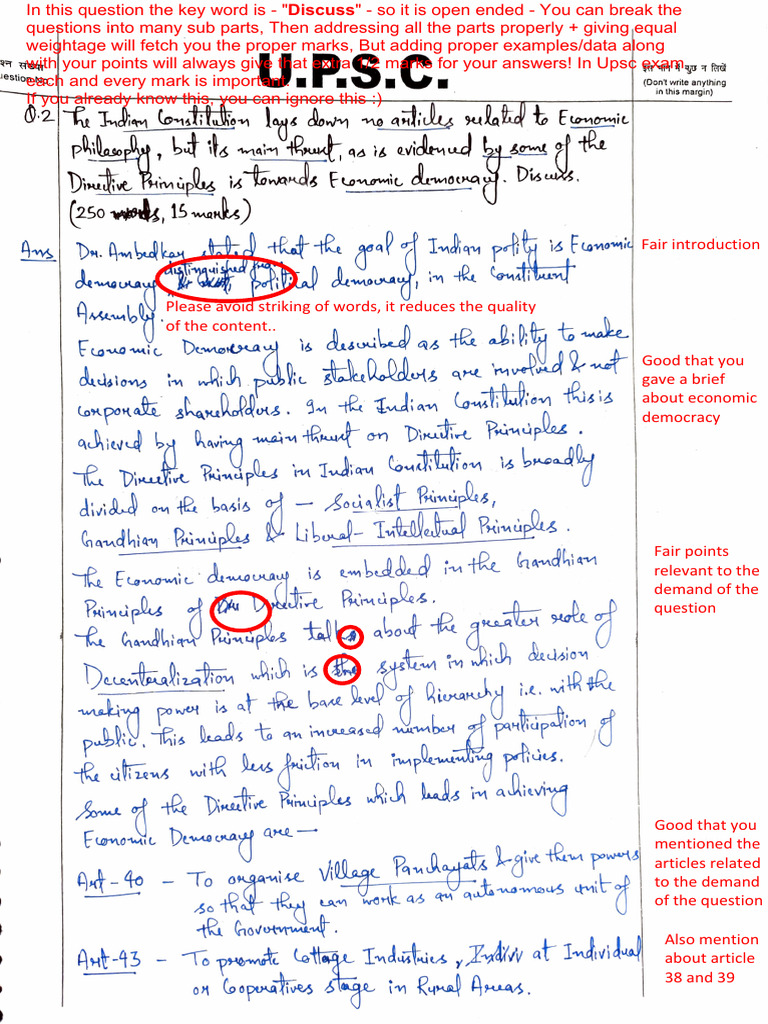 In this question the key word is - "Discuss" - so it is open ended - You can break the
questions into many sub parts, Then addressing all the parts properly + giving equal
weightage will fetch you the proper marks, But adding proper examples/data along
with your points will always give that extra 1/2 marks for your answers! In Upsc exam
each and every mark is important.
If you already know this, you can ignore this :)
U.P.S.C.
इस भाग में कुछ न लिखें
(Don't write anything
in this margin)
Q.2 The Indian Constitution lays down no articles related to Economic
philosophy, but its main thrust, as is evidenced by some of the
Directive Principles is towards Economic democracy. Discuss.
(250 words, 15 marks)
Ans Dr. Ambedkar stated that the goal of Indian polity is Economic
democracy distinguished from political democracy, in the Constituent
Assembly.
Fair introduction
Please avoid striking of words, it reduces the quality
of the content..
Economic Democracy is described as the ability to make
decisions in which public stakeholders are involved & not
corporate shareholders. In the Indian Constitution this is
achieved by having main thrust on Directive Principles.
Good that you
gave a brief
about economic
democracy
The Directive Principles in Indian Constitution is broadly
divided on the basis of – Socialist Principles,
Gandhian Principles & Liberal-Intellectual Principles.
The Economic democracy is embedded in the Gandhian
Principles of Directive Principles.
Fair points
relevant to the
demand of the
question
The Gandhian Principles talk about the greater role of
Decentoralization which is system in which decision
making power is at the base level of hierarchy i.e. with the
public. This leads to an increased number of participation of
the citizens with less friction in implementing policies.
Some of the Directive Principles which leads in achieving
Economic Democracy are —
Art-40 – To organise Village Panchayats & give them powers
so that they can work as an autonomous unit of
the Government.
Good that you
mentioned the
articles related
to the demand
of the question
Art-43 – To promote Cottage Industries, at Individual
or Cooperatives stage in Rural Areas.
Also mention
about article
38 and 39